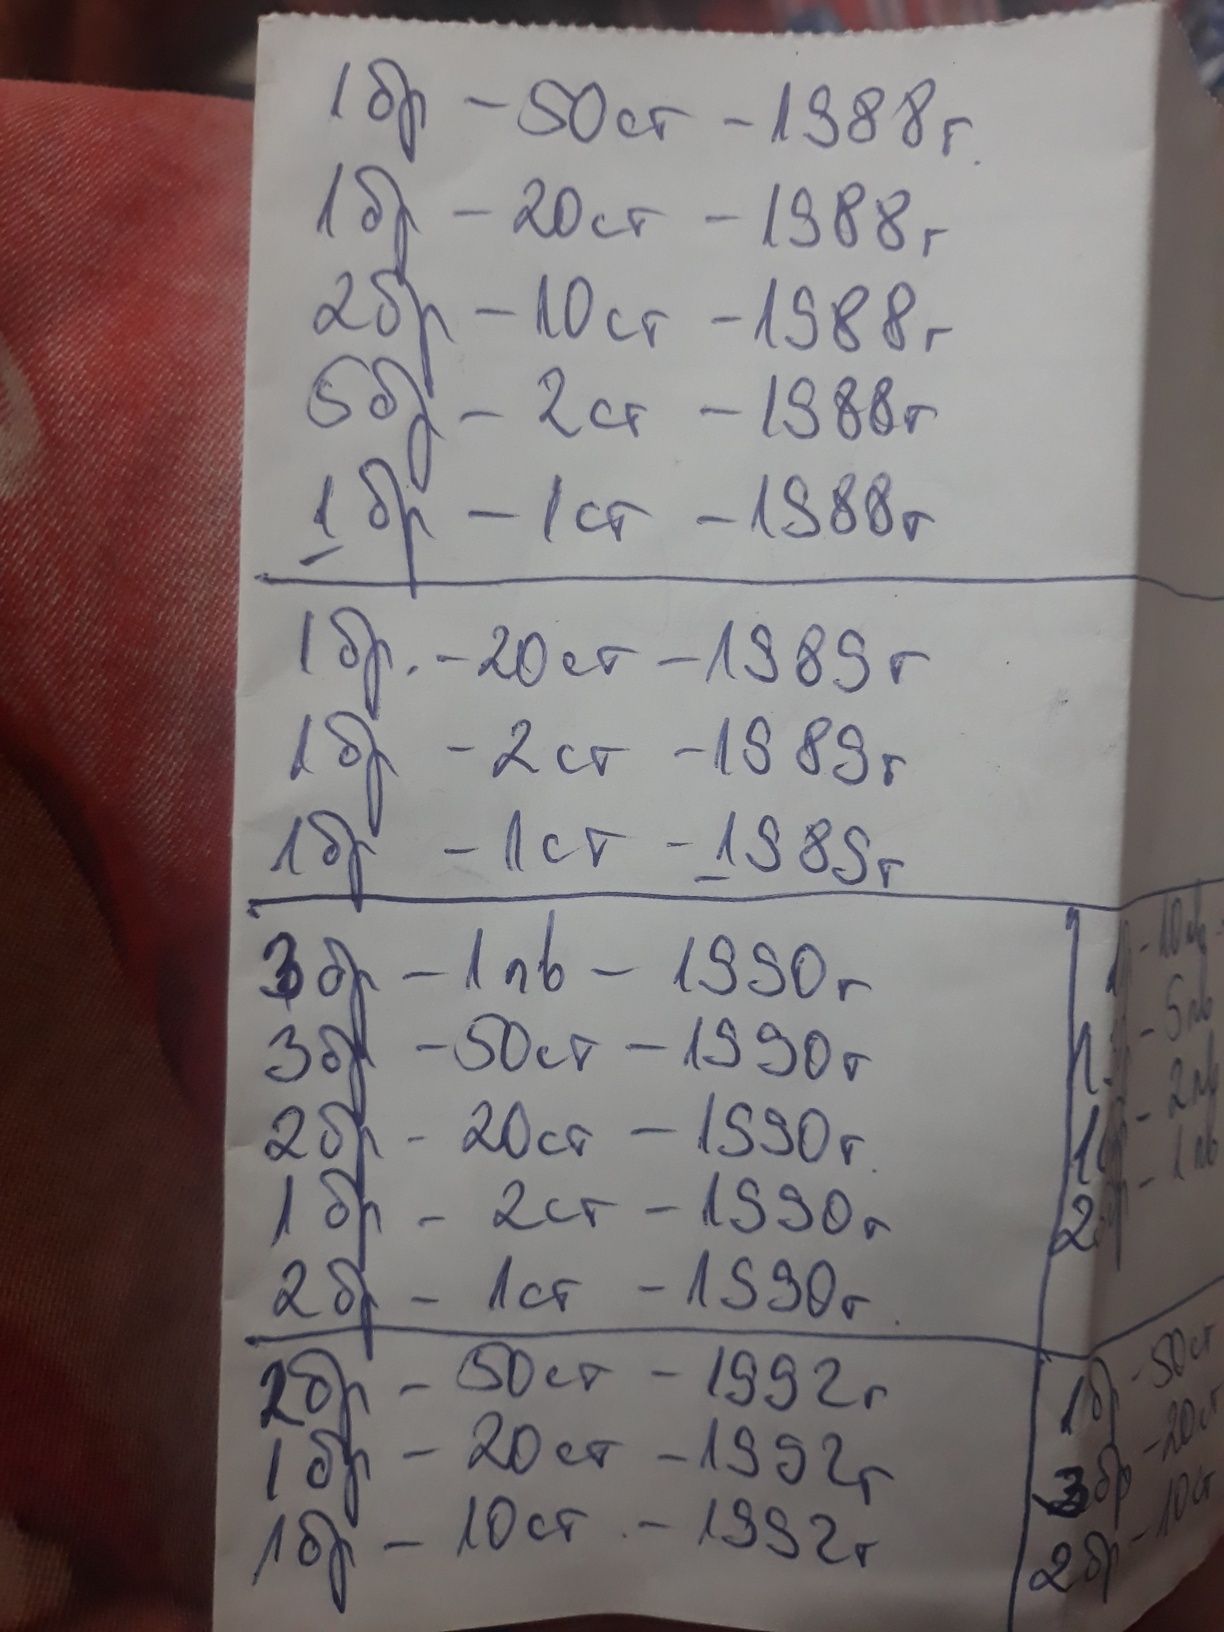 1бр - 50ст - 1988г.
1бр - 20ст - 1988г
2бр - 10ст - 1988г
5бр - 2ст - 1988г
1бр - 1ст - 1988г
1бр. - 20ст - 1989г
1бр - 2ст - 1989г
1бр - 1ст - 1989г
3бр - 1лв - 1990г
3бр - 50ст - 1990г
2бр - 20ст - 1990г.
1бр - 2ст - 1990г
2бр - 1ст - 1990г.
2бр - 50ст - 1992г
1бр - 20ст - 1992г
1бр - 10ст - 1992г
- 10лв -
- 5лв
1бр - 2лв
2бр - 1лв
1бр - 50ст
3бр - 20ст
2бр - 10ст